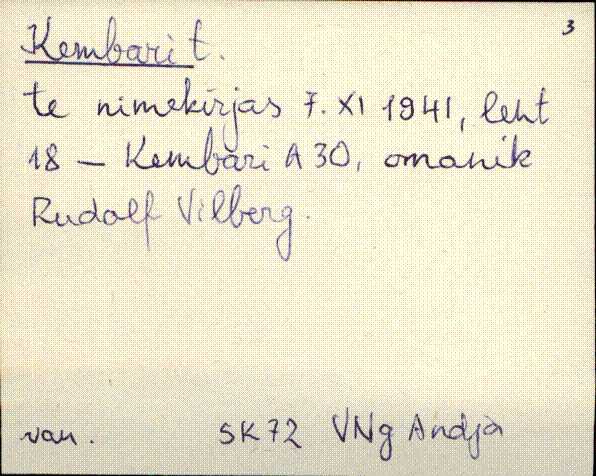 3
Kembari t.
te nimekirjas 7. XI 1941, leht
18 – Kembari A 30, omanik
Rudolf Vilberg.
van. SK72 VNg Andja